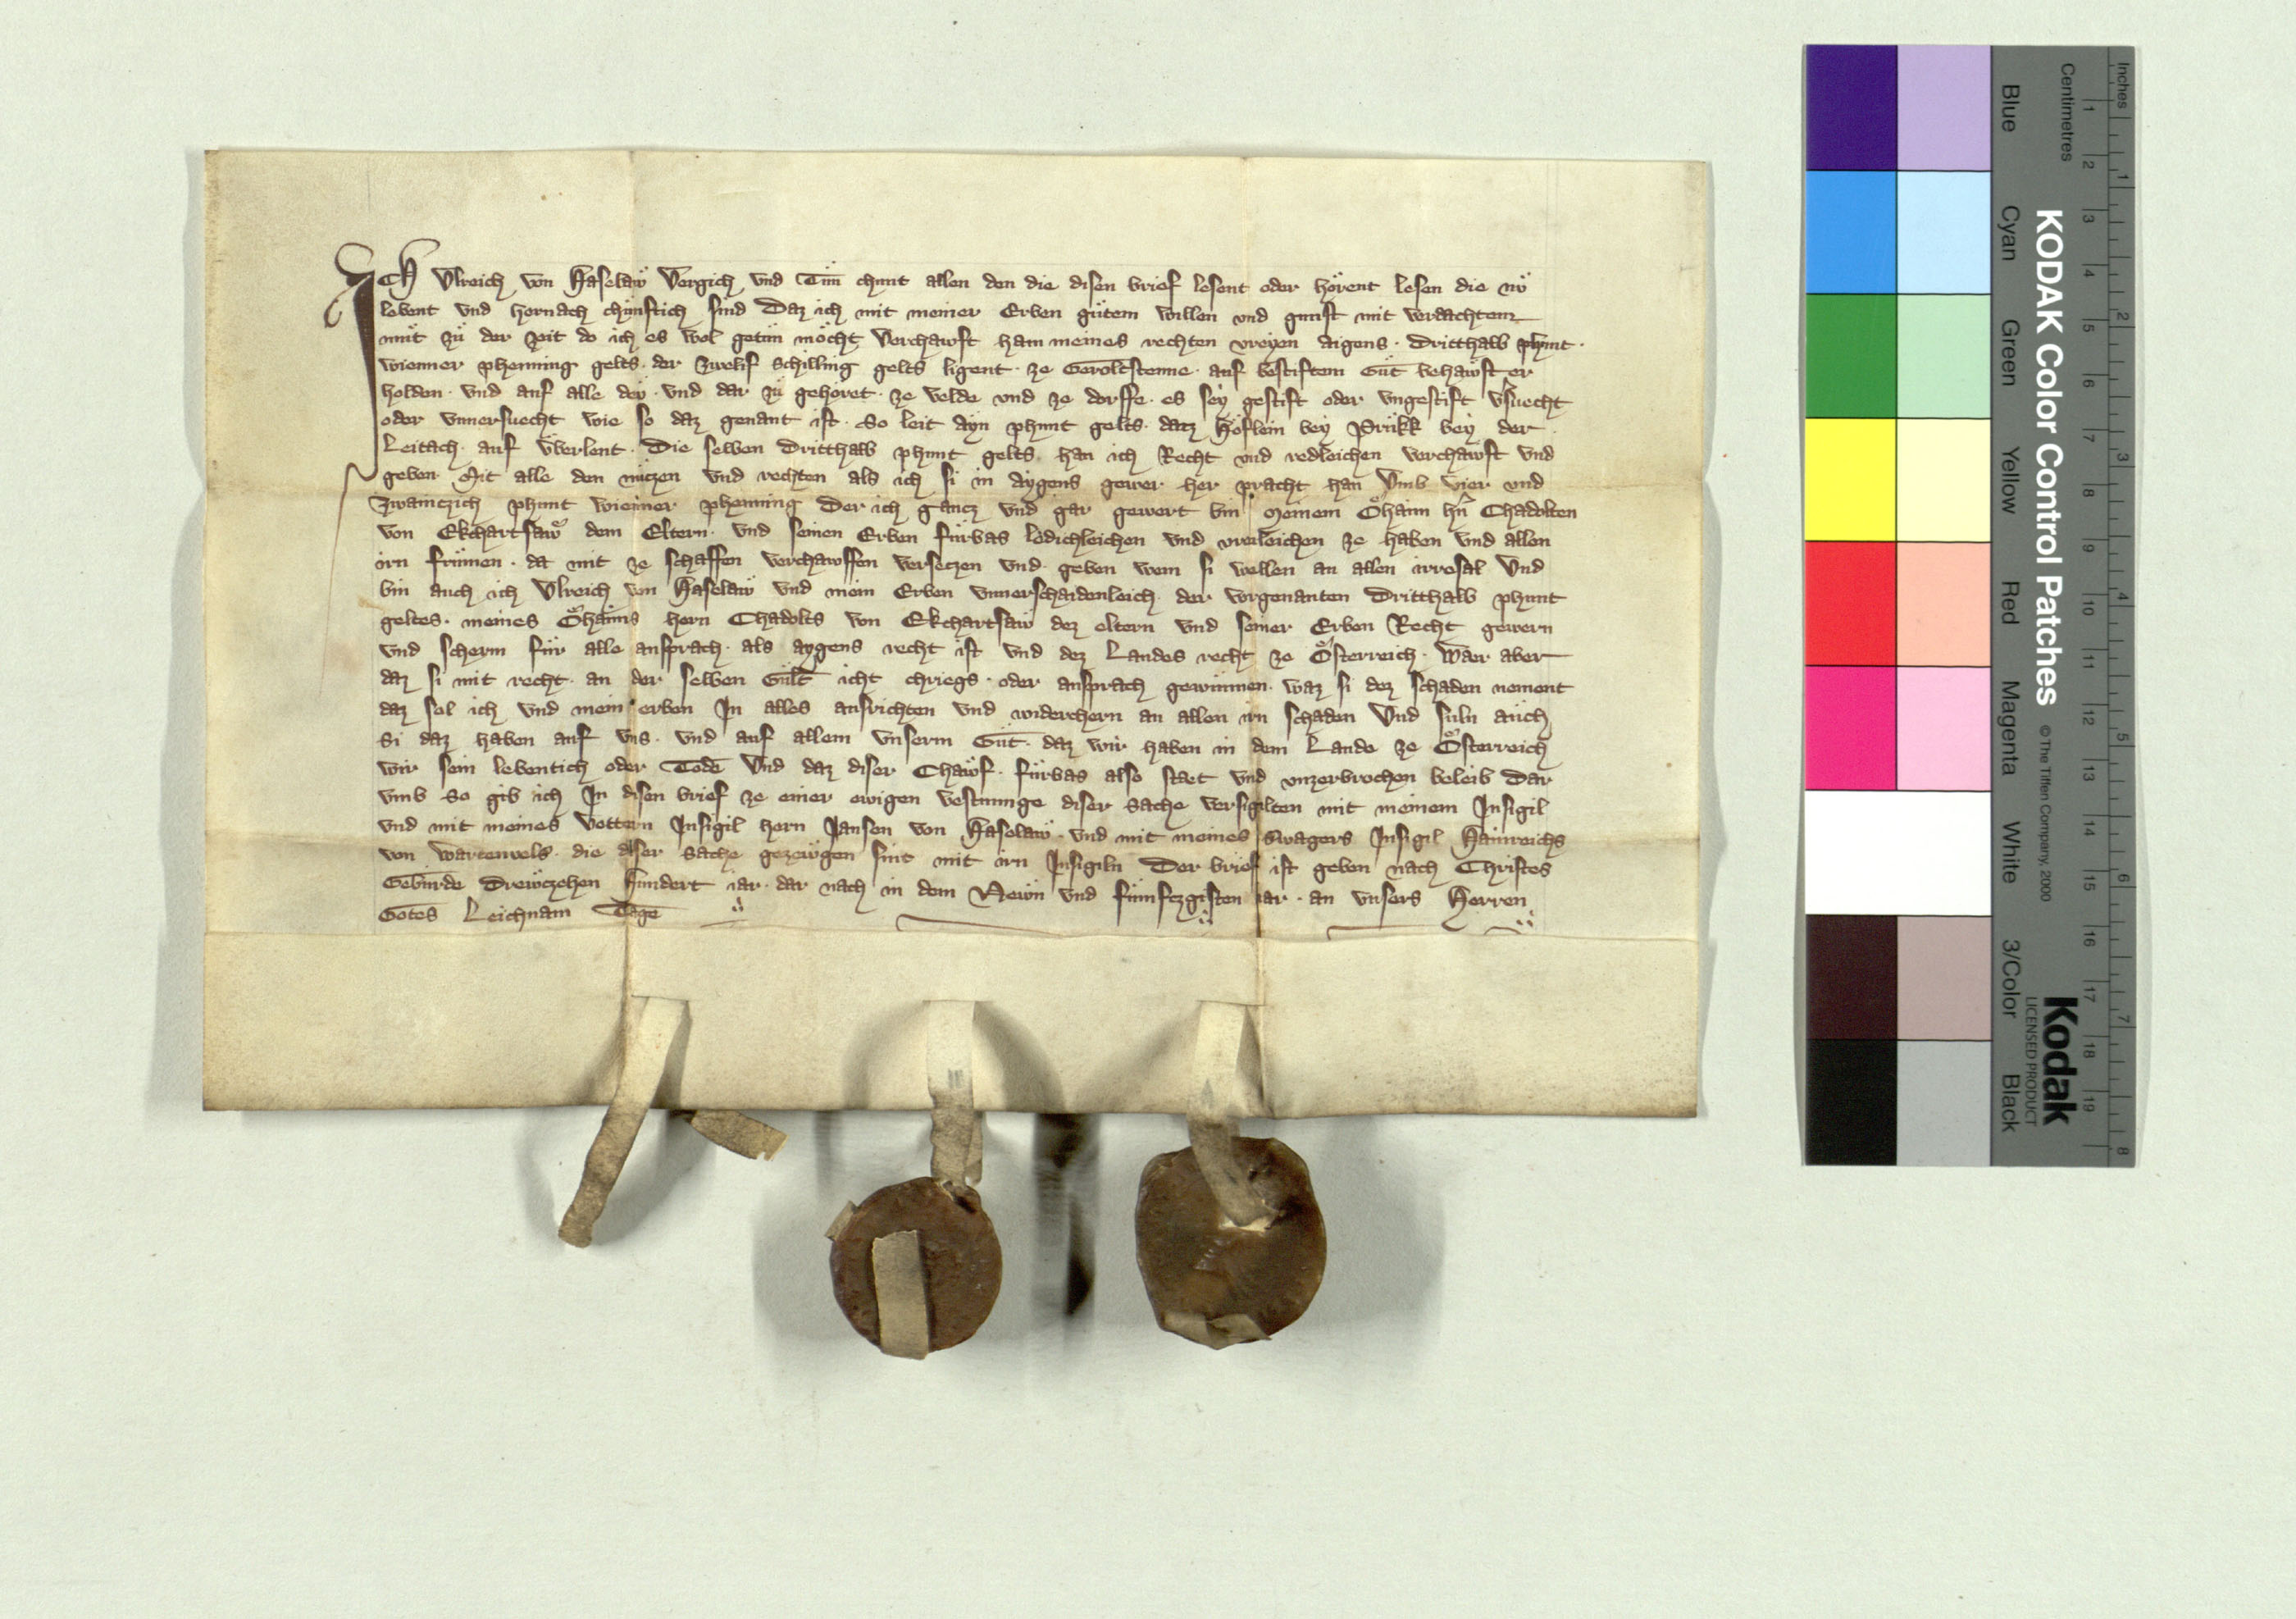 ICH Ulreich von Haselaw Vergich und Tun chunt allen den die disen brief lesent oder hörent lesen die nu
lebent und hernach chunftich sind Daz ich mit meiner Erben gutem willen und gunst mit verdachtem
mut zu der zeit do ich es wol getun möcht Verchawft han meines rechten vreyen aigens · dritthalb phunt ·
wienner phenning gelts · der zwelif schilling gelts ligent · ze Geroltstenne · auf bestiftem Gut behawster
holden · und auf alle dev · und dar zu gehoret · ze velde und ze dorffe · es sey gestift oder ungestift v̓suecht
oder unnersuecht wie so daz genant ist · So leit ayn phunt gelts · datz Höflein bey Prukk bey der
Leitach · auf Uberlent · Die selben dritthalb phunt gelts han ich Recht und redleichen verchawft und
geben Mit alle den nuczen und rechten als ich si in aygens gewer her pracht han Umb vier und
zwainczich phunt wienner phenning Der ich gancz und gar gewert bin · meinem Öhaim hn̄ Chadolten
von Ekchartsaw dem Eltern · und seinen Erben fürbas ledichleichen und vreileichen ze haben und allen
irn frumen · da mit ze schaffen verchawffen verseczen und geben wem si wellen an allen irresal Und
bin auch ich Ulreich von Haselaw und mein Erben unnerschaidenleich der vorgenanten dritthalb phunt
geltes · meines Öhaims hern Chadolts von Ekchartsaw dez eltern und seiner Erben Recht gewern
und scherm für alle ansprach · als aygens recht ist und dez Landes recht ze Österreich · Waer aber
daz si mit recht · an der selben Gült icht chriegs · oder ansprach gewunnen · waz si dez schaden nement
daz sol ich und mein erben In alles ausrichten und widerchern an allen irn schaden Und suln auch
si daz haben auf uns · und auf allem unserm Gut · daz wir haben in dem Lande ze Österreich
wir sein lebentich oder Tode Und daz diser Chawf · fürbas also staet und unzerbrochen beleib Dar
umb So gib ich In disen brief ze einer ewigen vestnunge diser sache versigilten mit meinem Insigil
und mit meines vettern Insigil hern Jansen von Haselaw · und mit meines Swagers Insigil Hainreichs
von Wartenvels · die diser sache gezewgen sint mit irn Insigiln Der brief ist geben nach Christes
Geburde Drewczehen Hundert iar · dar nach in dem Newn und fumfczgisten iar · an unsers Herren
Gotes Leichnam Tage
Inches
Centimetres
1 2 3 4 5 6 7 8
1 2 3 4 5 6 7 8 9 10 11 12 13 14 15 16 17 18 19
KODAK Color Control Patches © The Tiffen Company, 2000
Kodak
LICENSED PRODUCT
Blue Cyan Green Yellow Red Magenta White 3/Color Black